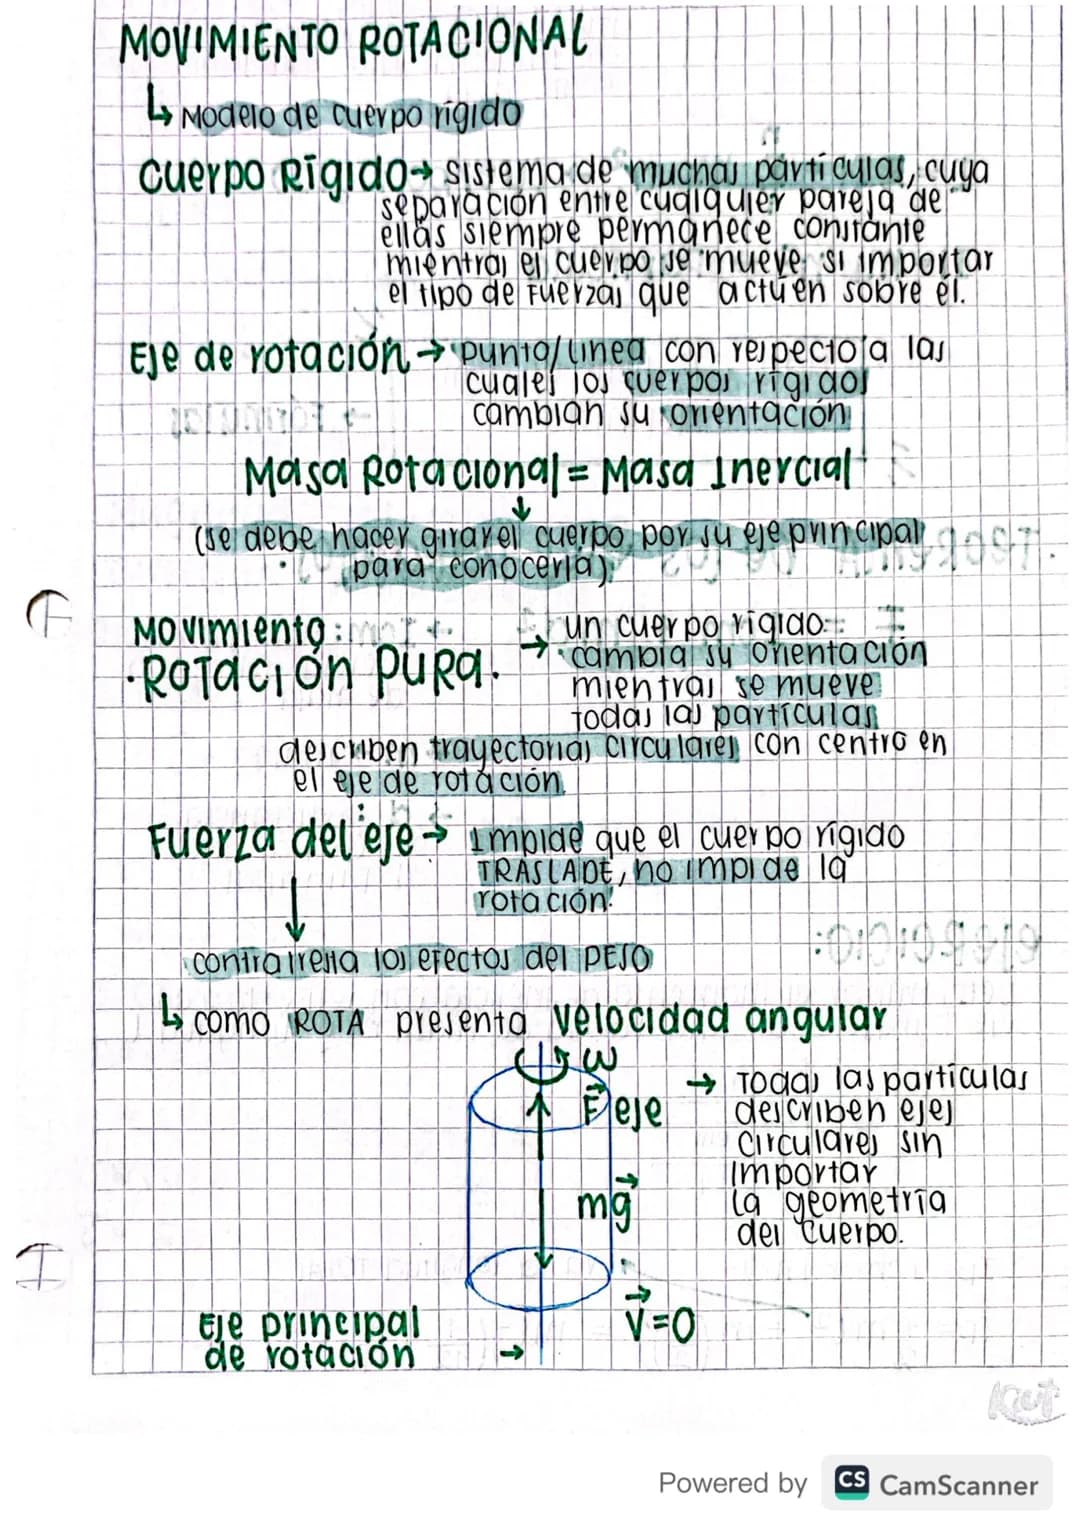 MOVIMIENTO ROTACIONAL
↳ Modelo de cuerpo rígido
Cuerpo Rígido → sistema de muchas partículas, cuya
separación entre cualquier pareja de
ellas siempre permanece constante
mientras el cuerpo se mueve si importar
el tipo de Fuerzas que actúen sobre él.
Eje de rotación → punto/linea con respecto a las
cuales los cuerpos rígidos
cambian su orientación
Masa Rotacional = Masa Inercial
↓
(se debe hacer girar el cuerpo por su eje principal
para conocerla)
Movimiento:
• ROTACIÓN PURA. → un cuerpo rígido
cambia su orientación
mientras se mueve
todas las partículas
describen trayectorias circulares con centro en
el eje de rotación
Fuerza del eje → Impide que el cuerpo rígido
TRASLADE, no impide la
rotación.
↓
contrarresta los efectos del PESO
↳ como ROTA presenta velocidad angular
ω
F eje
mg
v=0
→ Todas las partículas
describen ejes
circulares sin
importar
la geometría
del cuerpo.
Eje principal
de rotación →
Powered by CS CamScanner